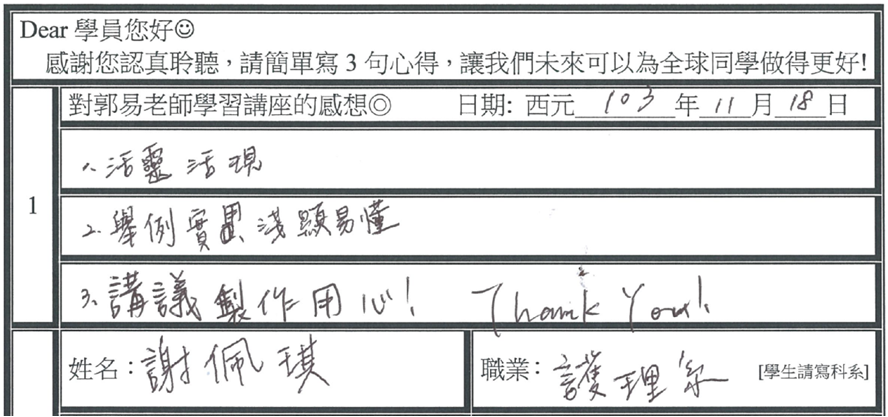 Dear 學員您好☺
感謝您認真聆聽，請簡單寫 3 句心得，讓我們未來可以為全球同學做得更好!
對郭易老師學習講座的感想◎ 日期: 西元 103 年 11 月 18 日
1
1. 活靈活現
2. 舉例實 淺顯易懂
3. 講議製作用心! Thank You!
姓名：謝佩琪 職業：護理系 [學生請寫科系]